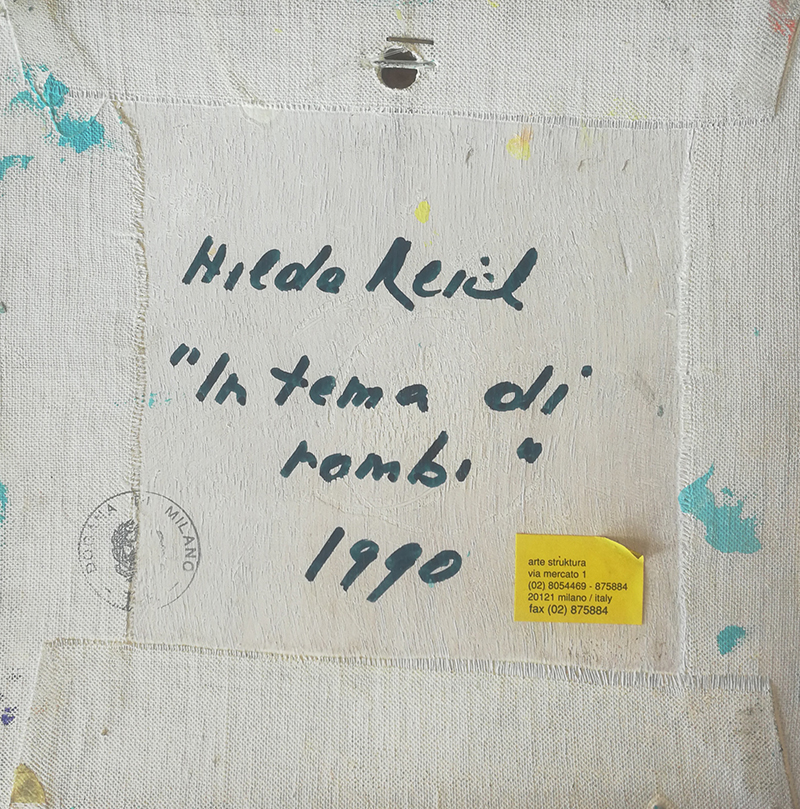 Hilda Reich
"In tema di
rombi"
1990
DOGANA DI MILANO
arte struktura
via mercato 1
(02) 8054469 - 875884
20121 milano / italy
fax (02) 875884